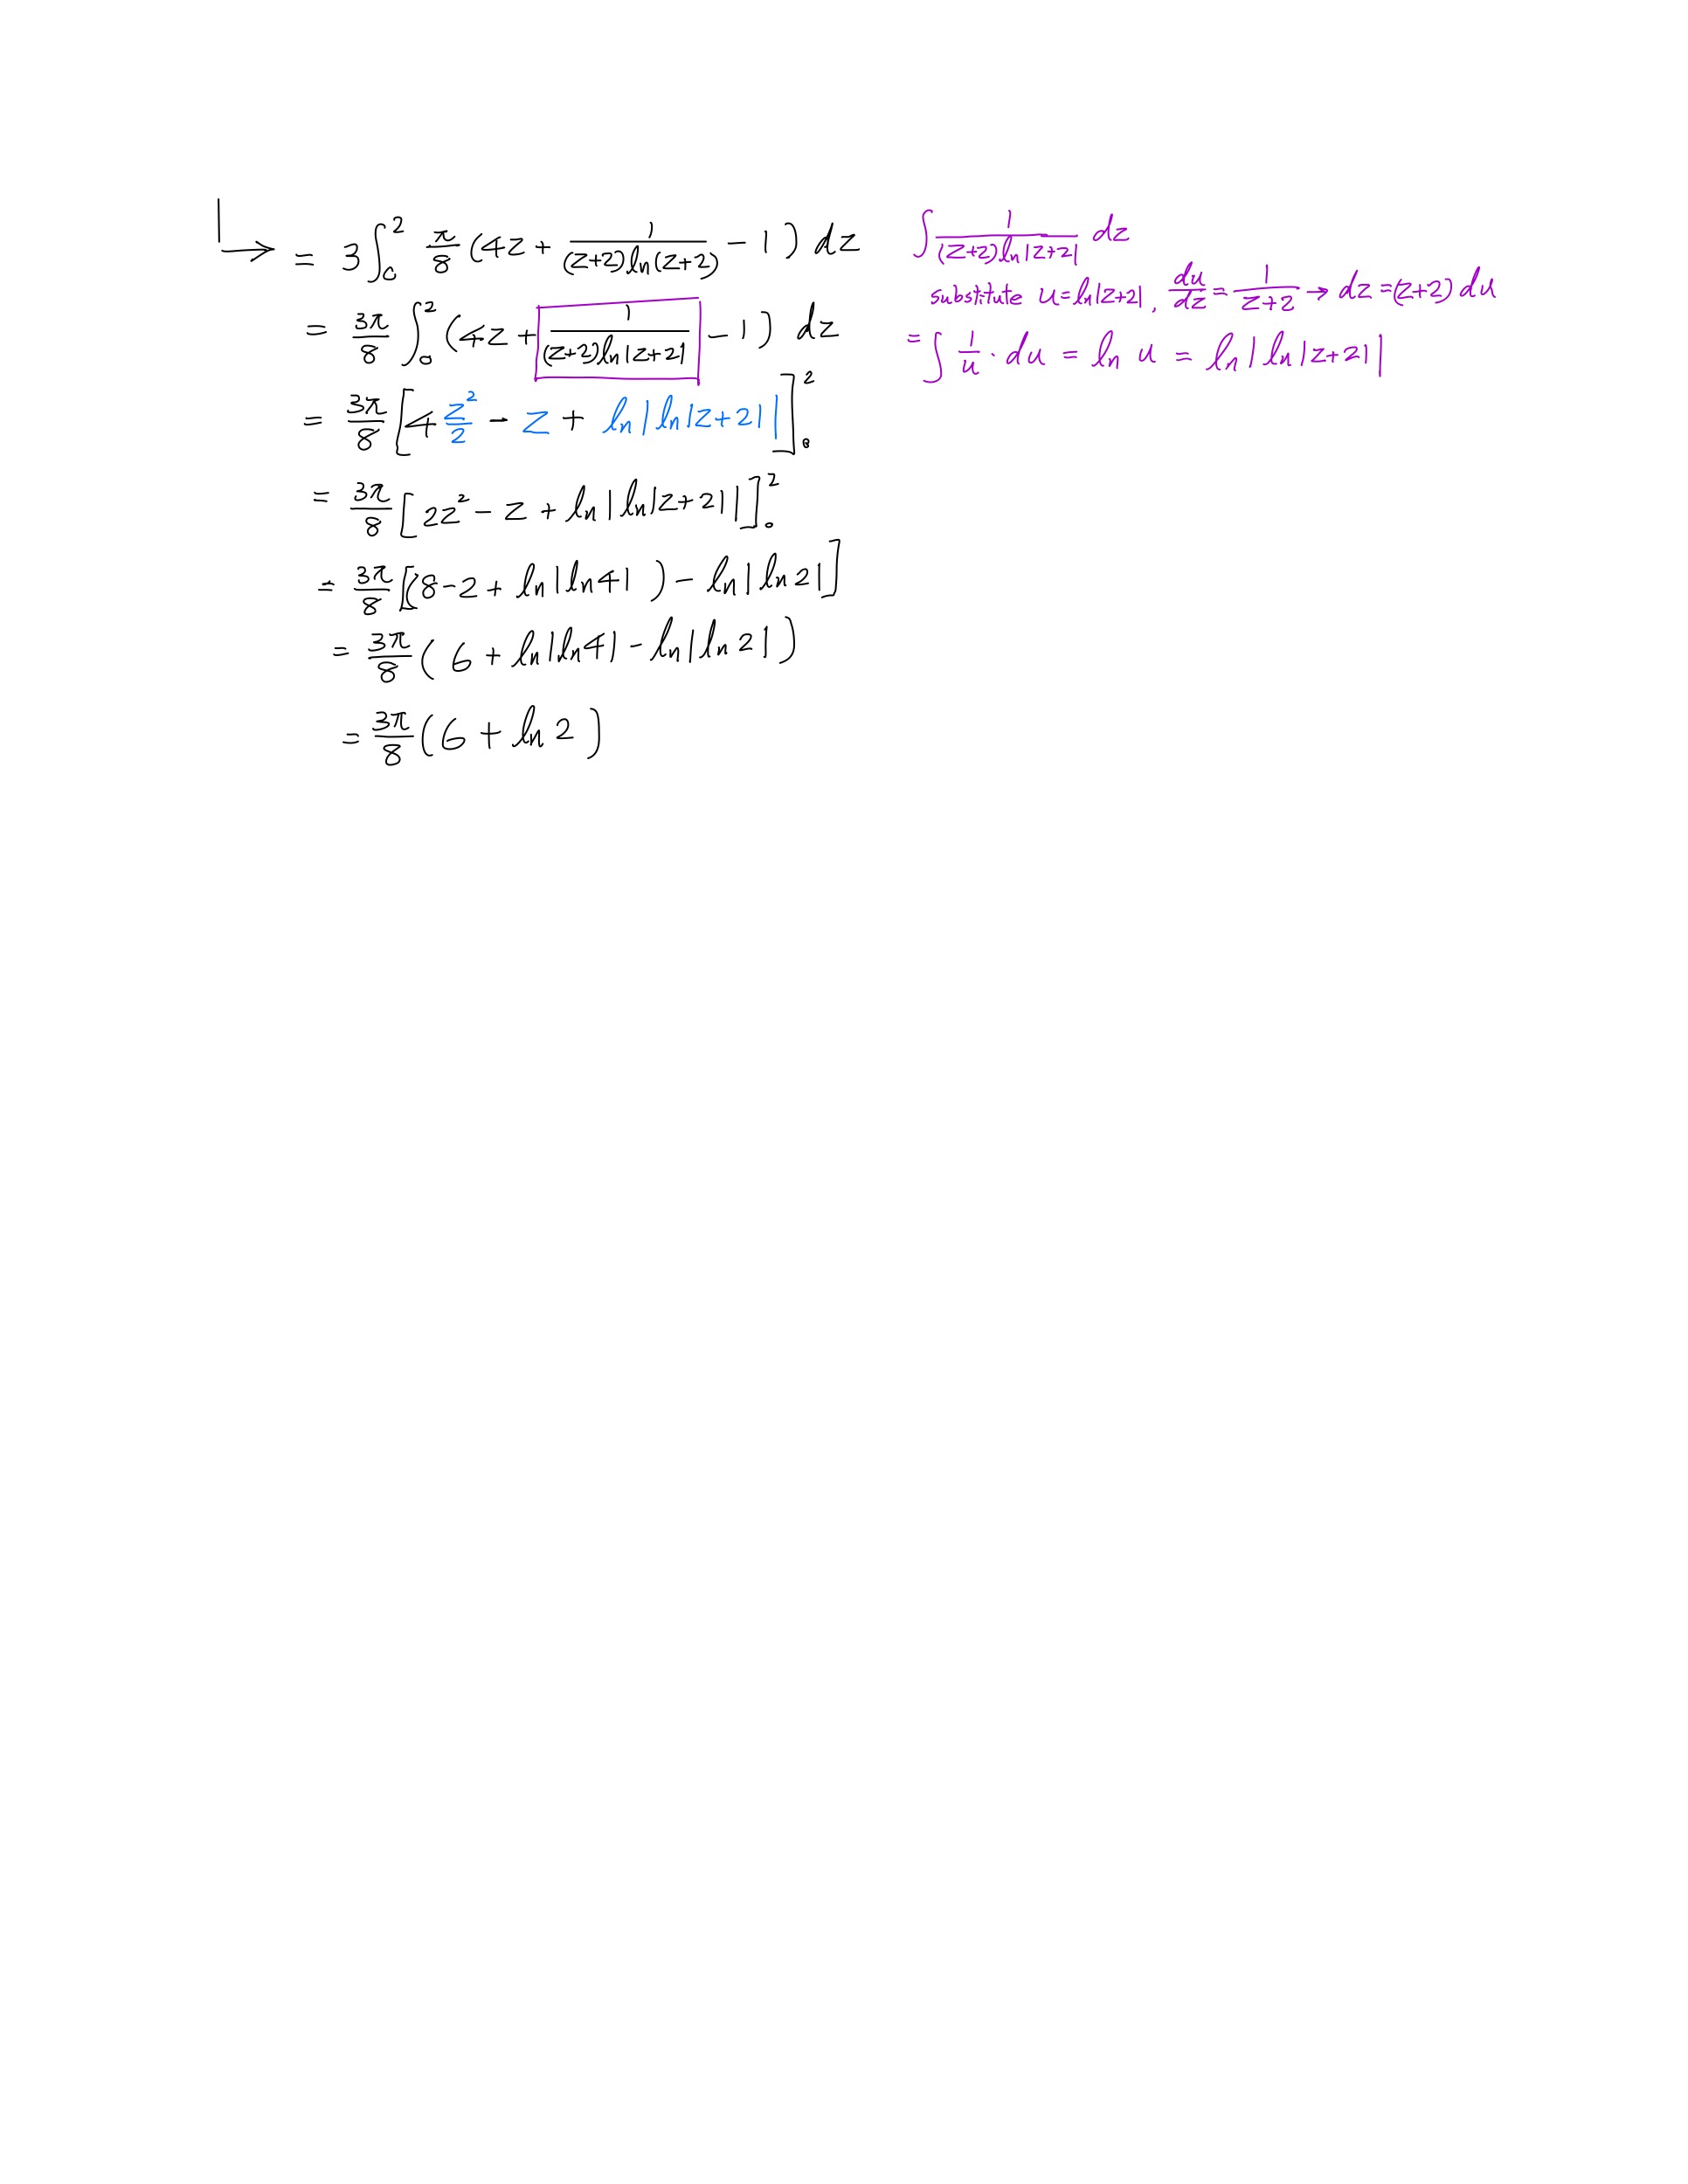 = 3∫₀² π/8 (4z + 1/((z+2)ln(z+2)) − 1) dz
= 3π/8 ∫₀² (4z + 1/((z+2)ln|z+2|) − 1) dz
= 3π/8 [4 z²/2 − z + ln|ln|z+2||]₀²
= 3π/8 [2z² − z + ln|ln|z+2||]₀²
= 3π/8 [(8−2 + ln|ln4| ) − ln|ln2|]
= 3π/8 ( 6 + ln|ln4| − ln|ln2|)
= 3π/8 (6 + ln2)
∫ 1/((z+2)ln|z+2|) dz
substitute u=ln|z+2|, du/dz = 1/(z+2) → dz =(z+2) du
= ∫ 1/u · du = ln u = ln|ln|z+2||